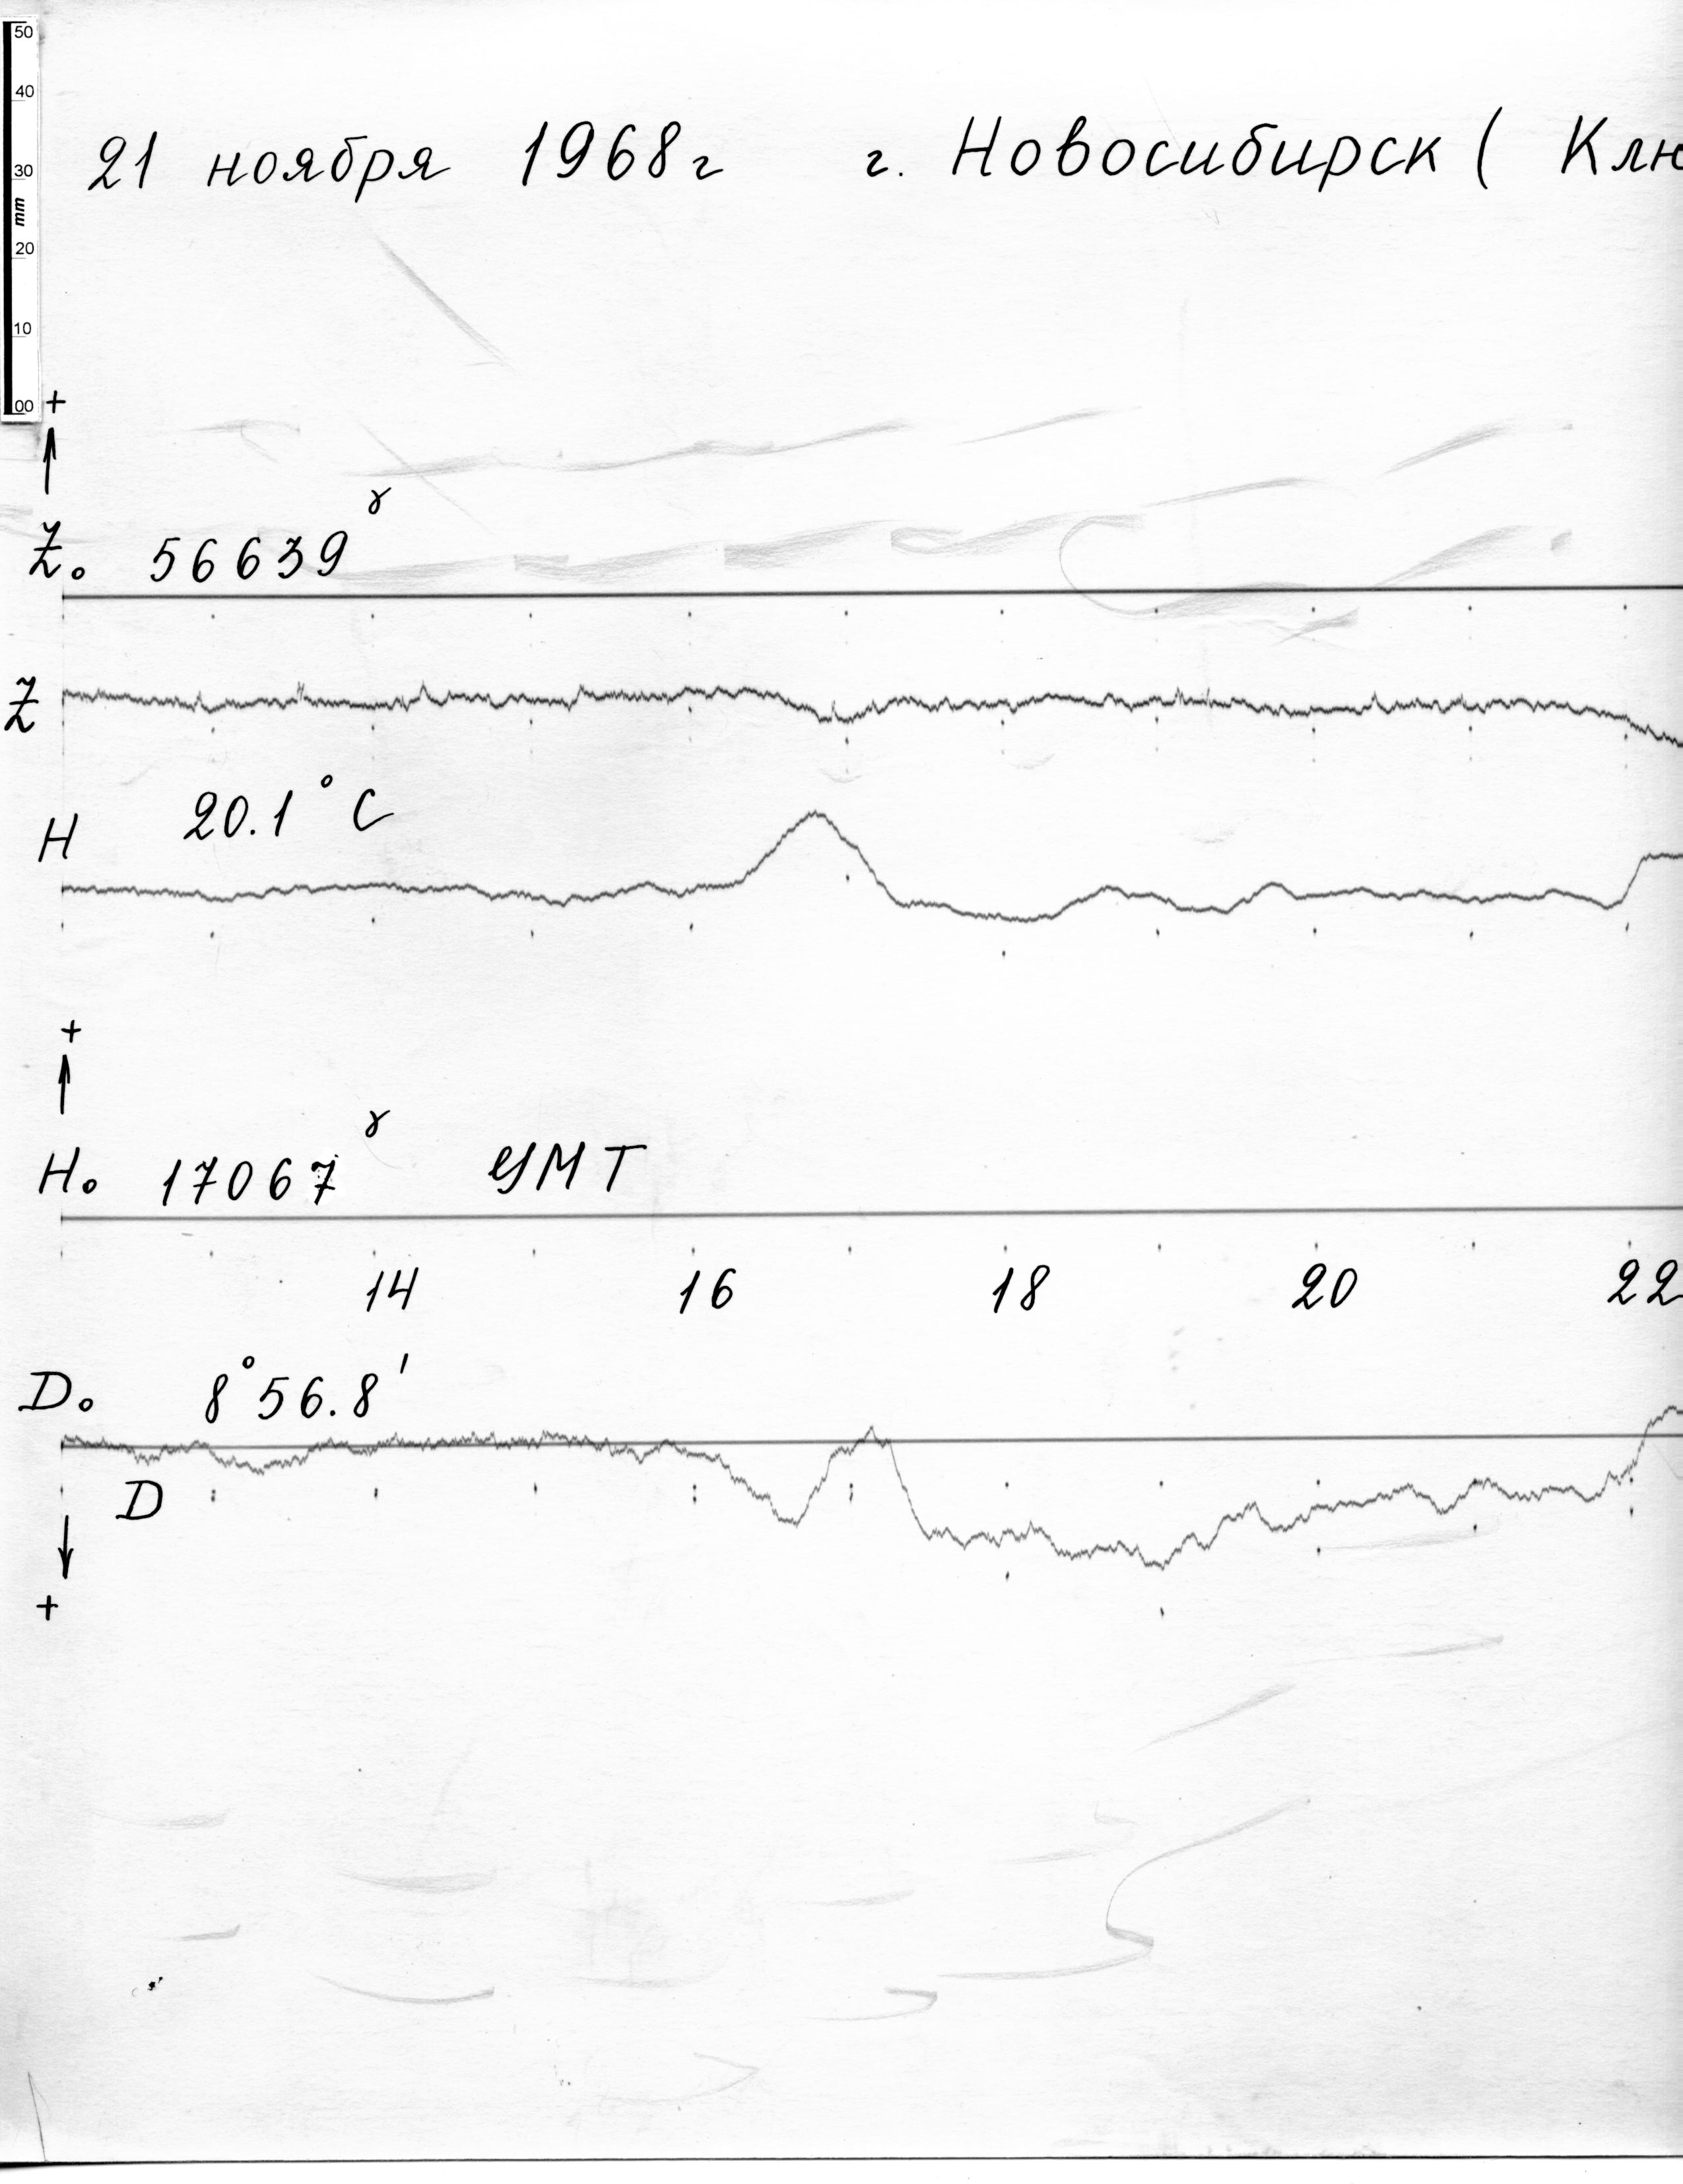 50
40
30
mm
20
10
00
21 ноября 1968г г. Новосибирск ( Клю
+
Z₀ 56639 γ
Z
H 20.1°C
+
H₀ 17067 γ УМТ
14 16 18 20 22
D₀ 8°56.8'
D
+